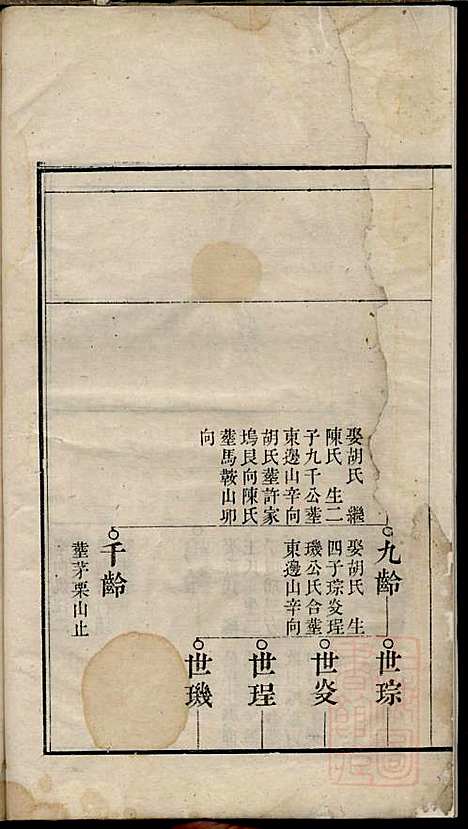 娶胡氏 繼
陳氏 生二
子九千公塟
東邊山辛向
胡氏塟許家
塢艮向陳氏
塟馬鞍山卯
向
九齡
娶胡氏 生
四子琮炎珵
璣公氏合塟
東邊山辛向
千齡
塟茅栗山止
世琮
世炎
世珵
世璣